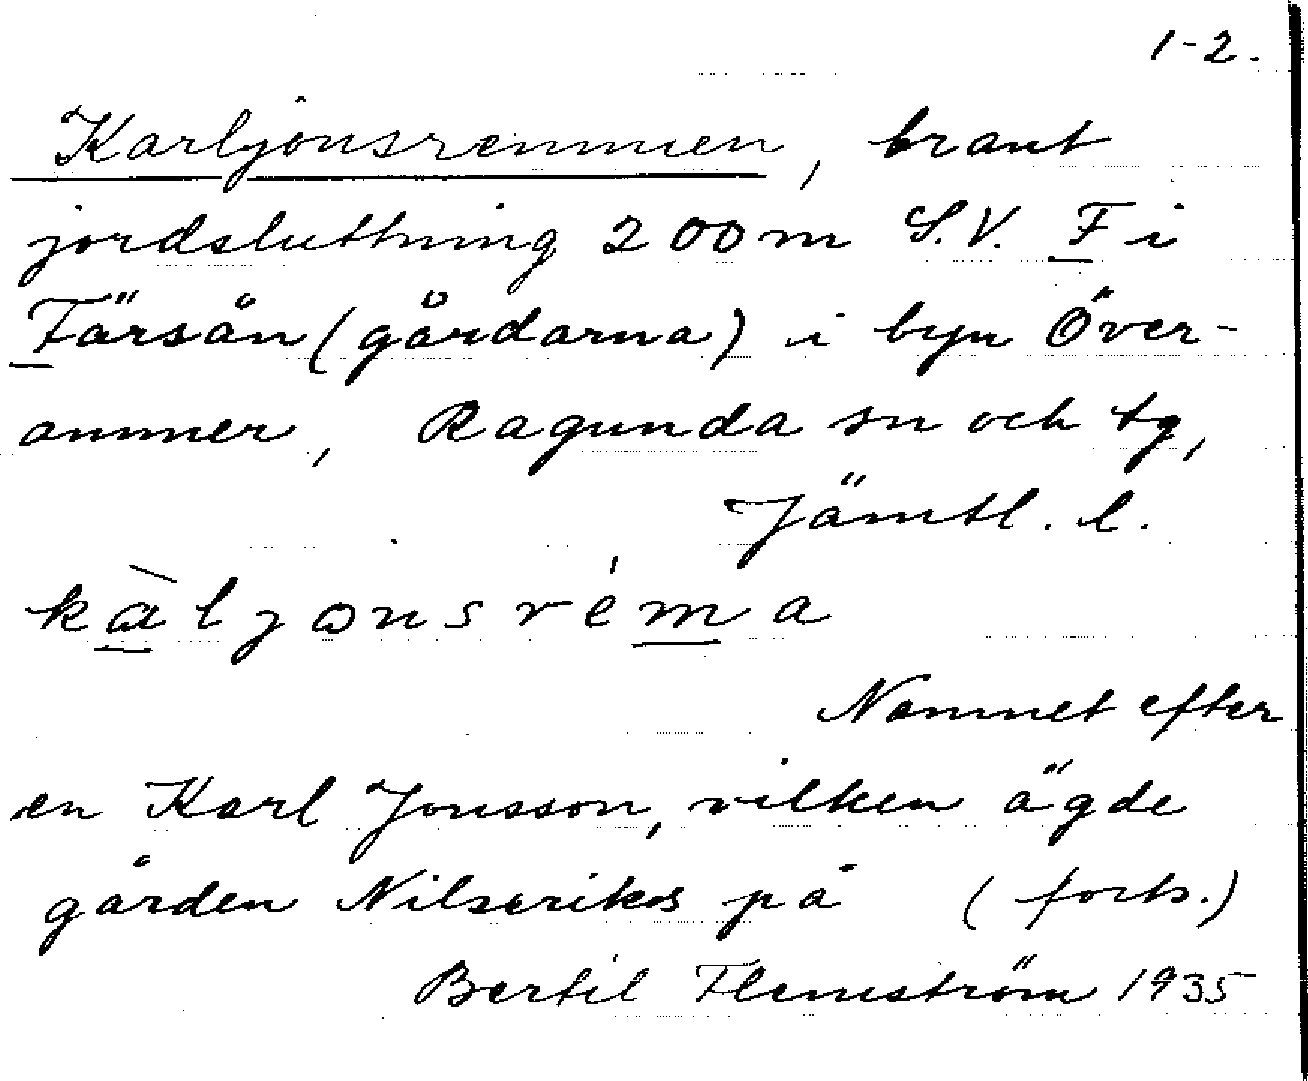 1-2.
Karljonsremmen, brant
jordsluttning 200 m S.V. F i
Färsån (gårdarna) i byn Över-
ammer, Ragunda sn och tg,
Jämtl. l.
kàljonsréma
Namnet efter
en Karl Jonsson, vilken ägde
gården Nilseriks på (forts.)
Bertil Flemström 1935